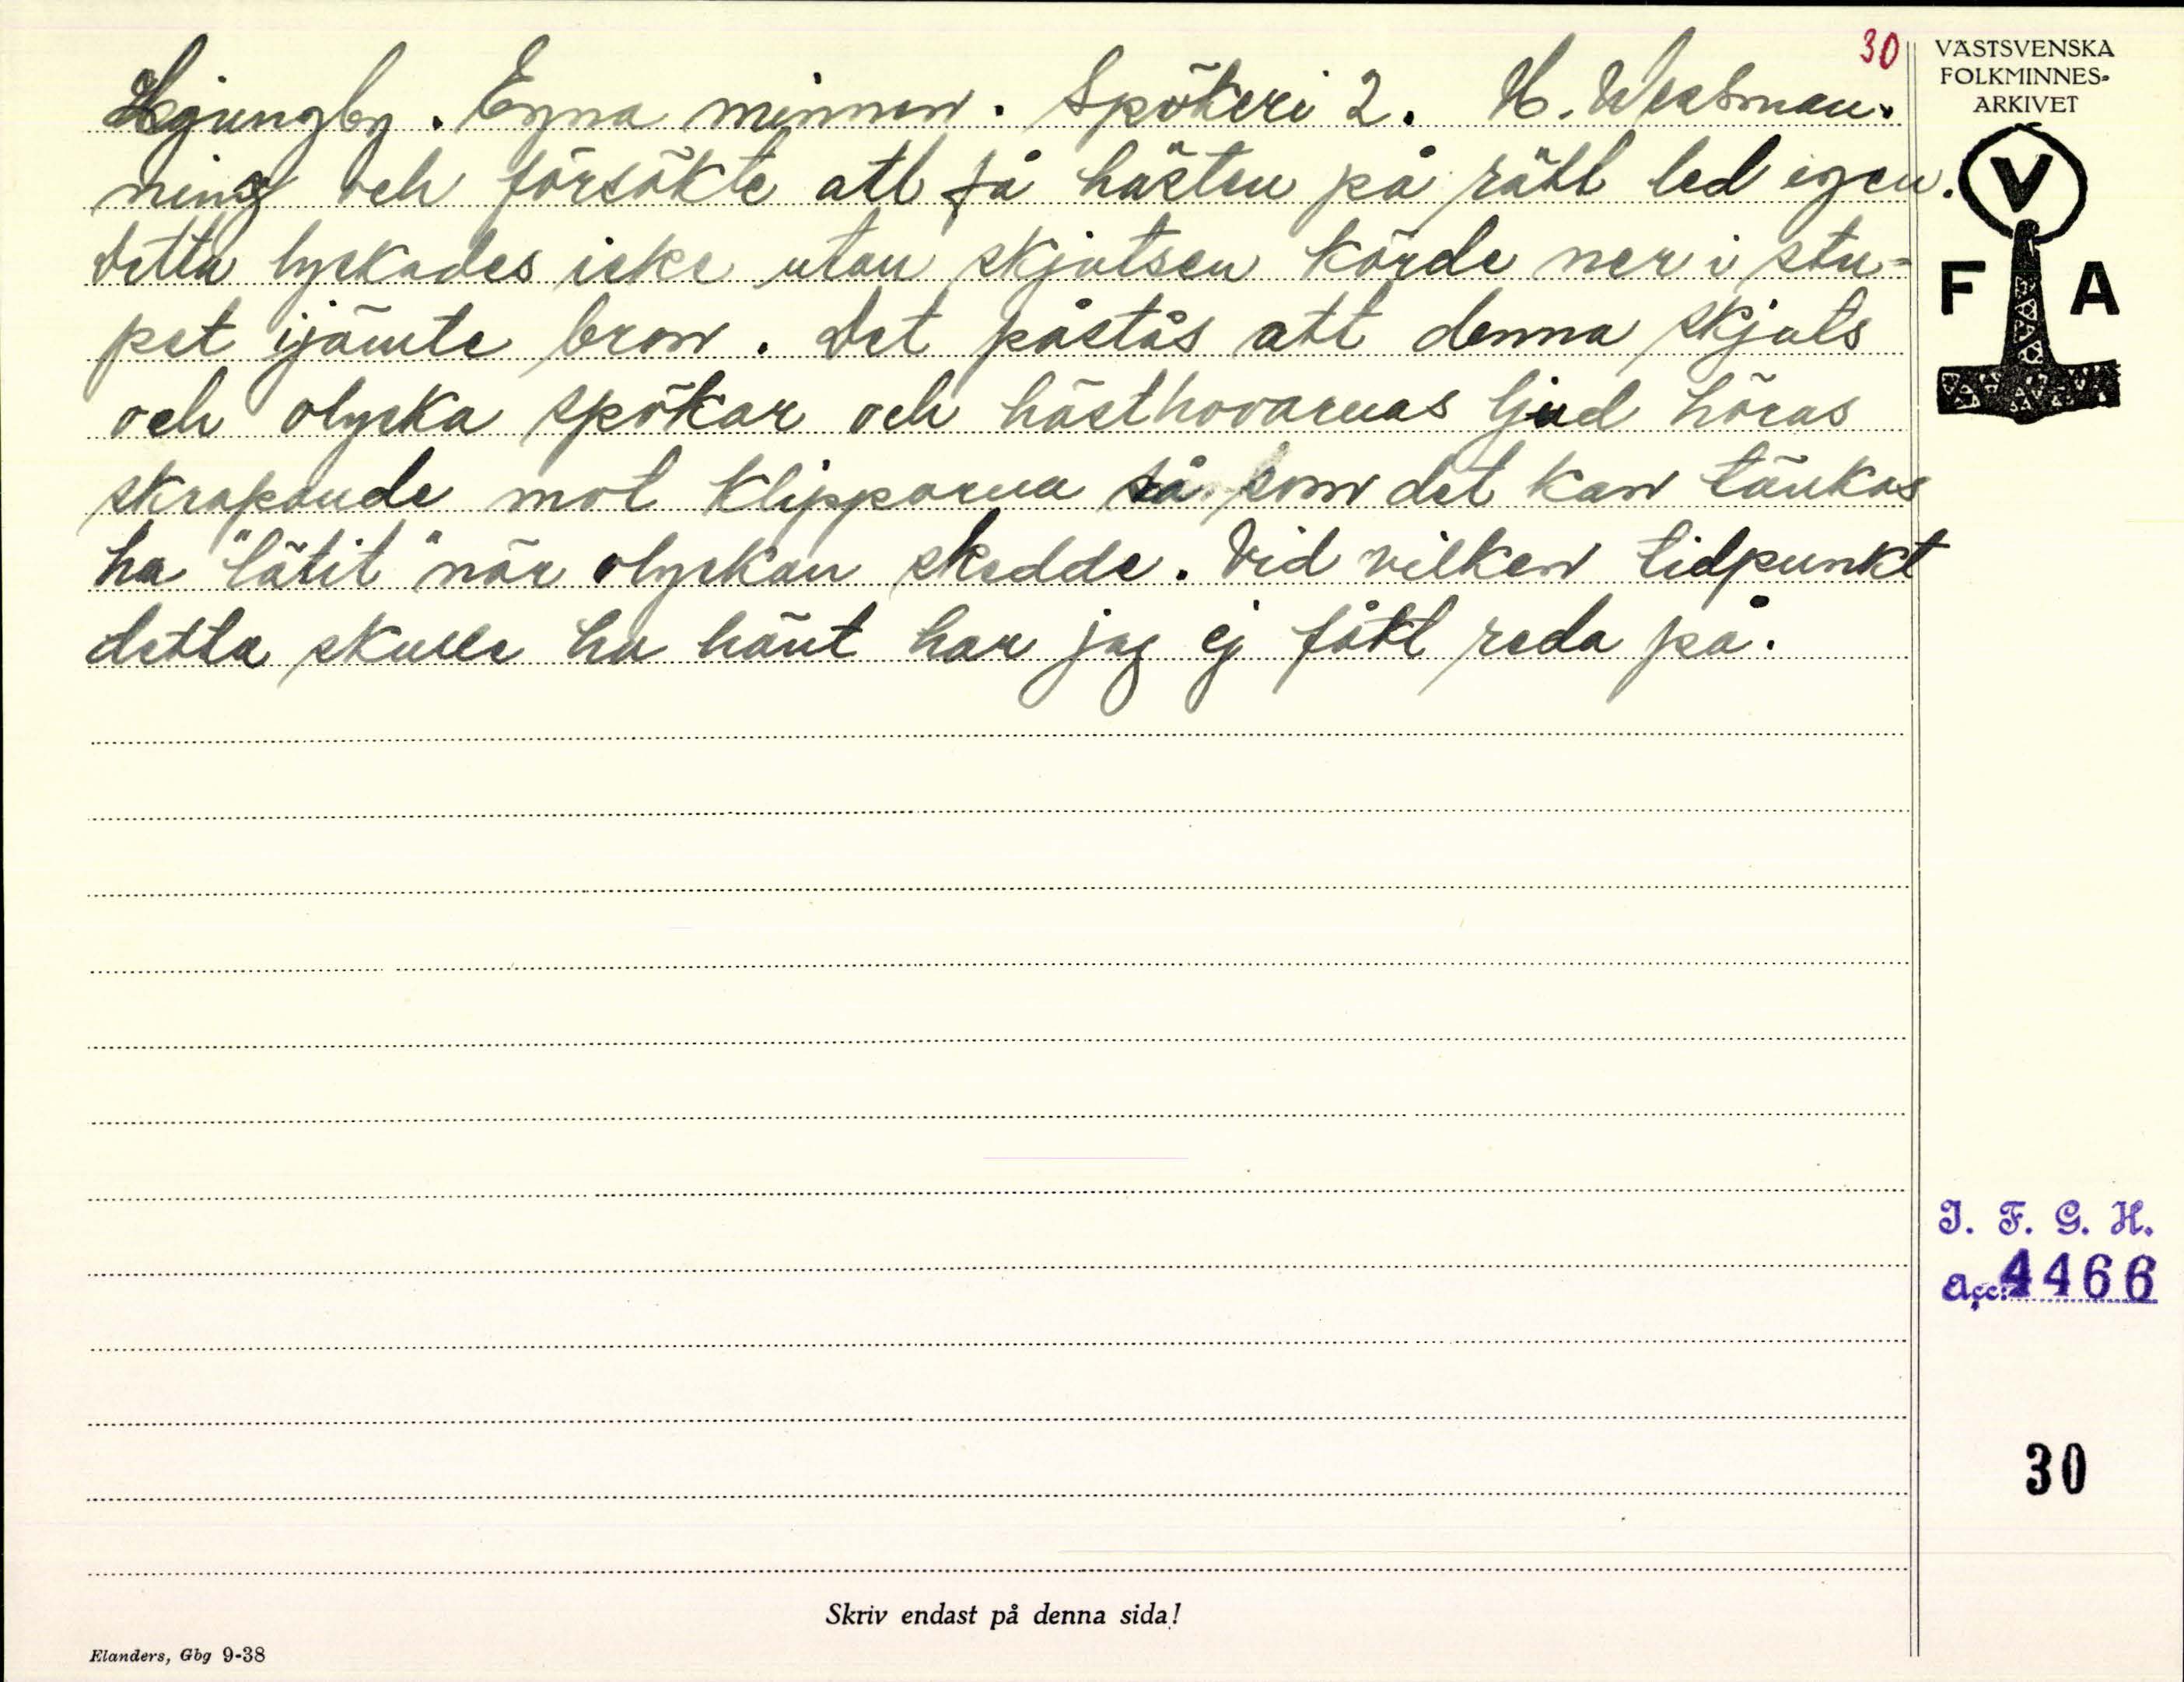 30
Ljungby. Egna minnen. Spökeri 2. H. Wessman.
ning och försökte att få hästen på rätt led igen.
Detta lyckades icke utan skjutsen körde ner i stu-
pet ijämte bron. Det påstås att denna skjuts
och olycka spökar och hästhovarnas ljud höras
skrapande mot klipporna så som det kan tänkas
ha "låtit" när olyckan skedde. Vid vilken tidpunkt
detta skulle ha hänt har jag ej fått reda på.
VÄSTSVENSKA
FOLKMINNES-
ARKIVET
V
F A
I. F. G. H.
Acc: 4466
30
Skriv endast på denna sida!
Elanders, Gbg 9-38